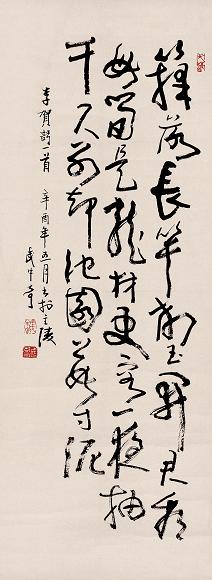 籜落長竿削玉開君看
母筍是龍材更容一夜抽
千尺別却池園數寸泥
李賀詩一首 辛酉年五月書於金陵
武中奇